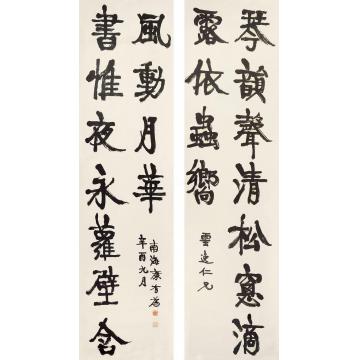 琴韻聲清松窻滴
露依蟲響
雲迻仁兄
書惟夜永蘿壁含
風動月華
南海康有為
辛酉九月